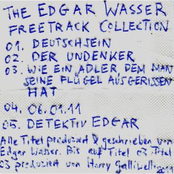 THE EDGAR WASSER
FREETRACK COLLECTION
01. DEUTSCHSEIN
02. DER UNDENKER
03. WIE EIN ADLER DEM MAN
SEINE FLÜGEL AUSGERISSEN
HAT
04. 06.01.11
05. DETEKTIV EDGAR
Alle Titel produziert & geschrieben von
Edgar Wasser Bis auf Titel 03 Titel
03 produziert von Harry
2011